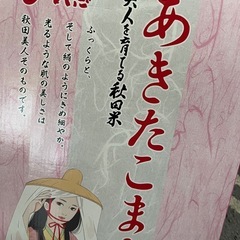 あきたこま
美人を育てる秋田米
ふっくらと、
そして絹のようにきめ細やか。
光るような肌の美しさは
秋田美人そのものです。